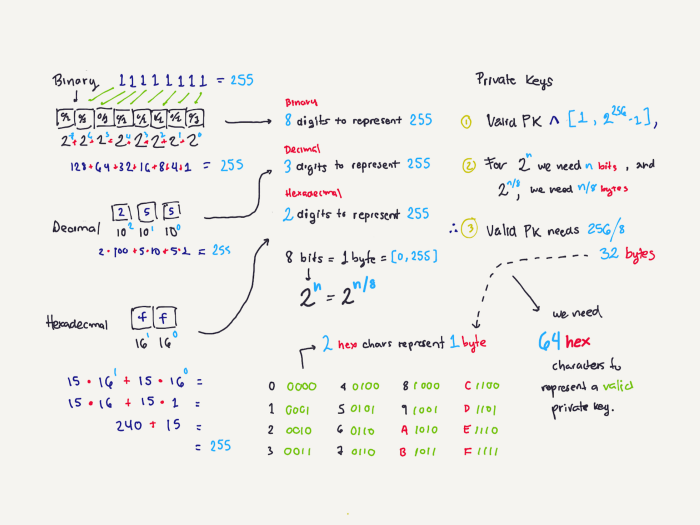 Binary 11111111 = 255
0/1 0/1 0/1 0/1 0/1 0/1 0/1 0/1
2^7+2^6+2^5+2^4+2^3+2^2+2^1+2^0
128+64+32+16+8+4+1 = 255
Decimal
2 5 5
10^2 10^1 10^0
2·100+5·10+5·1 = 255
Hexadecimal
f f
16^1 16^0
15 · 16^1 + 15 · 16^0 =
15 · 16 + 15 · 1 =
240 + 15 =
= 255
Binary
8 digits to represent 255
Decimal
3 digits to represent 255
Hexadecimal
2 digits to represent 255
8 bits = 1 byte = [0,255]
2^n = 2^n/8
2 hex chars represent 1 byte
0 0000 4 0100 8 1000 C 1100
1 0001 5 0101 9 1001 D 1101
2 0010 6 0110 A 1010 E 1110
3 0011 7 0110 B 1011 F 1111
Private Keys
① Valid PK ∧ [1, 2^256-1],
② For 2^n we need n bits, and
2^n/8, we need n/8 bytes
∴ ③ Valid PK needs 256/8
32 bytes
we need
64 hex
characters to
represent a valid
private key.